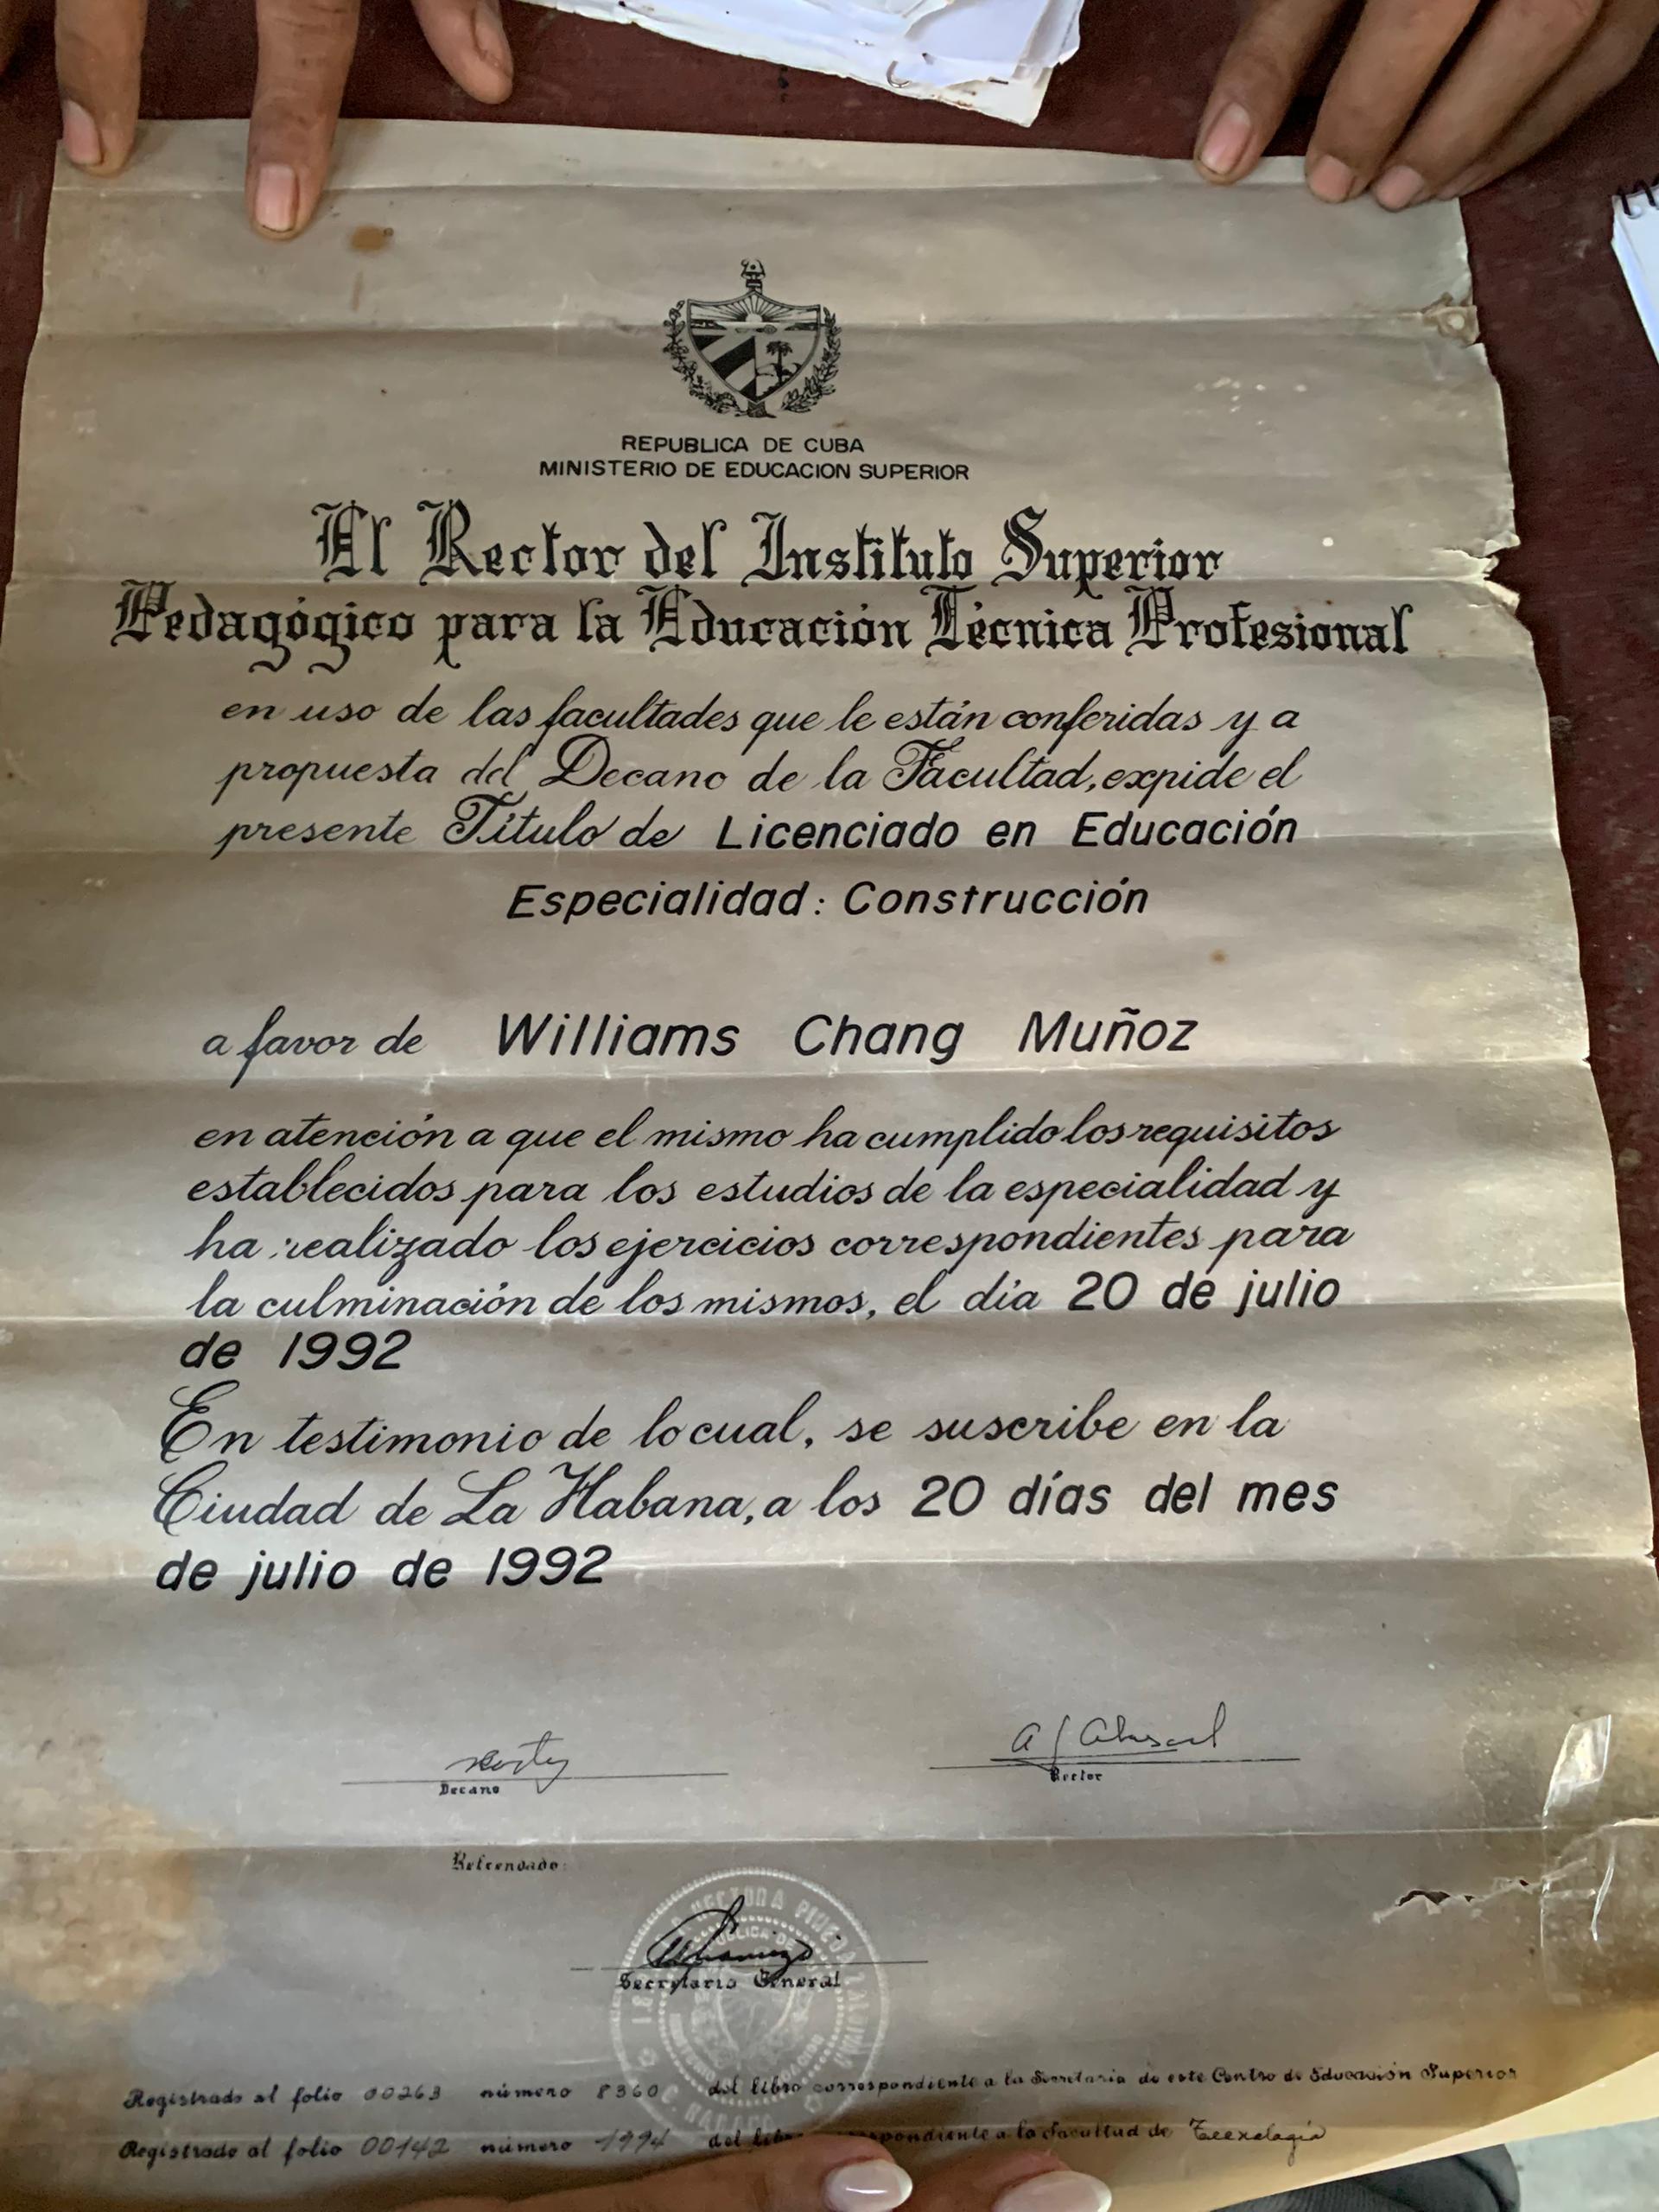 REPUBLICA DE CUBA
MINISTERIO DE EDUCACION SUPERIOR
El Rector del Instituto Superior
Pedagógico para la Educación Técnica Profesional
en uso de las facultades que le están conferidas y a
propuesta del Decano de la Facultad, expide el
presente Título de Licenciado en Educación
Especialidad: Construcción
a favor de Williams Chang Muñoz
en atención a que el mismo ha cumplido los requisitos
establecidos para los estudios de la especialidad y
ha realizado los ejercicios correspondientes para
la culminación de los mismos, el día 20 de julio
de 1992
En testimonio de lo cual, se suscribe en la
Ciudad de La Habana, a los 20 días del mes
de julio de 1992
Decano
Rector
Refrendado:
Secretario General
Registrado al folio 00263 número 8360 del libro correspondiente a la Secretaría de este Centro de Educación Superior
Registrado al folio 00142 número 1994 del a la Facultad de